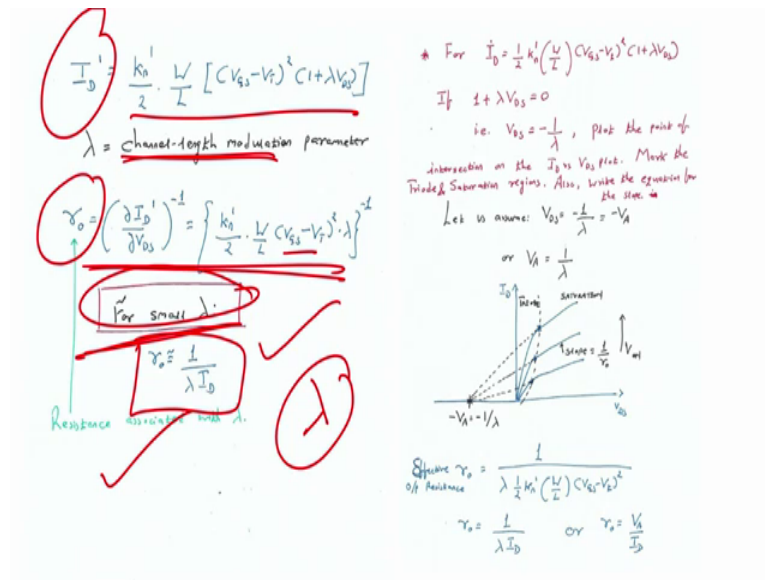 I_D' = k_n'/2 · W/L [(V_GS-V_T)² (1+λV_DS)]
λ = channel-length modulation parameter
r_o = (∂I_D'/∂V_DS)⁻¹ = {k_n'/2 · W/L (V_GS-V_T)² · λ}⁻¹
For small λ.
r_o ≅ 1/(λ I_D)
λ
Resistance associated with λ.
* For I_D = 1/2 k_n' (W/L) (V_GS-V_t)² (1+λV_DS)
If 1 + λV_DS = 0
i.e. V_DS = -1/λ, plot the point of
intersection on the I_D vs V_DS plot. Mark the
Triode & Saturation regions. Also, write the equation for
the slope is
Let us assume: V_DS = -1/λ = -V_A
or V_A = 1/λ
I_D
Triode
SATURATION
slope = 1/r_o
-V_A = -1/λ
V_DS
Effective r_o = 1/(λ 1/2 k_n' (W/L) (V_GS-V_t)²)
O/P Resistance
r_o = 1/(λ I_D) or r_o = V_A/I_D